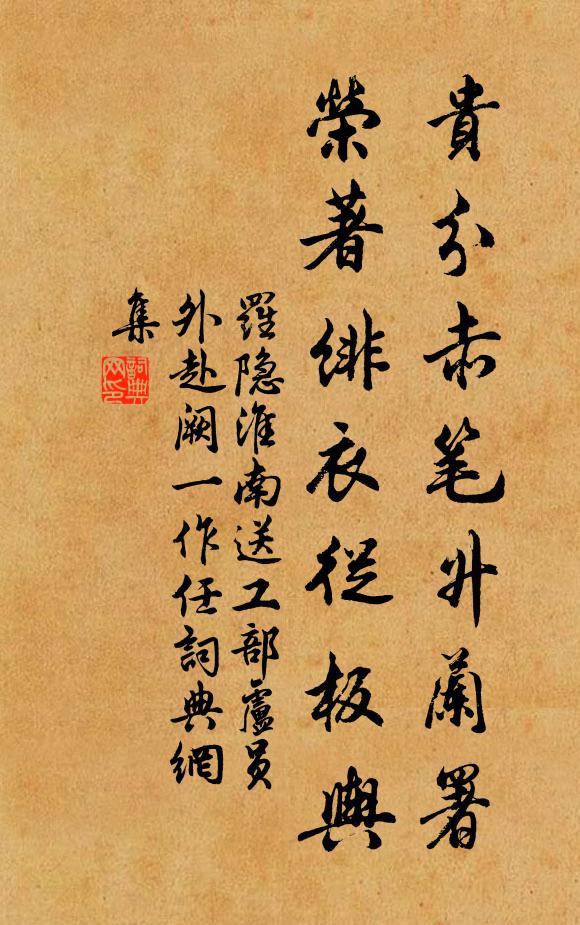 貴分赤笔升蘭署
榮著緋衣從板輿
羅隐淮南送工部盧员
外赴阙一作任詞典網
集
詞典
网印